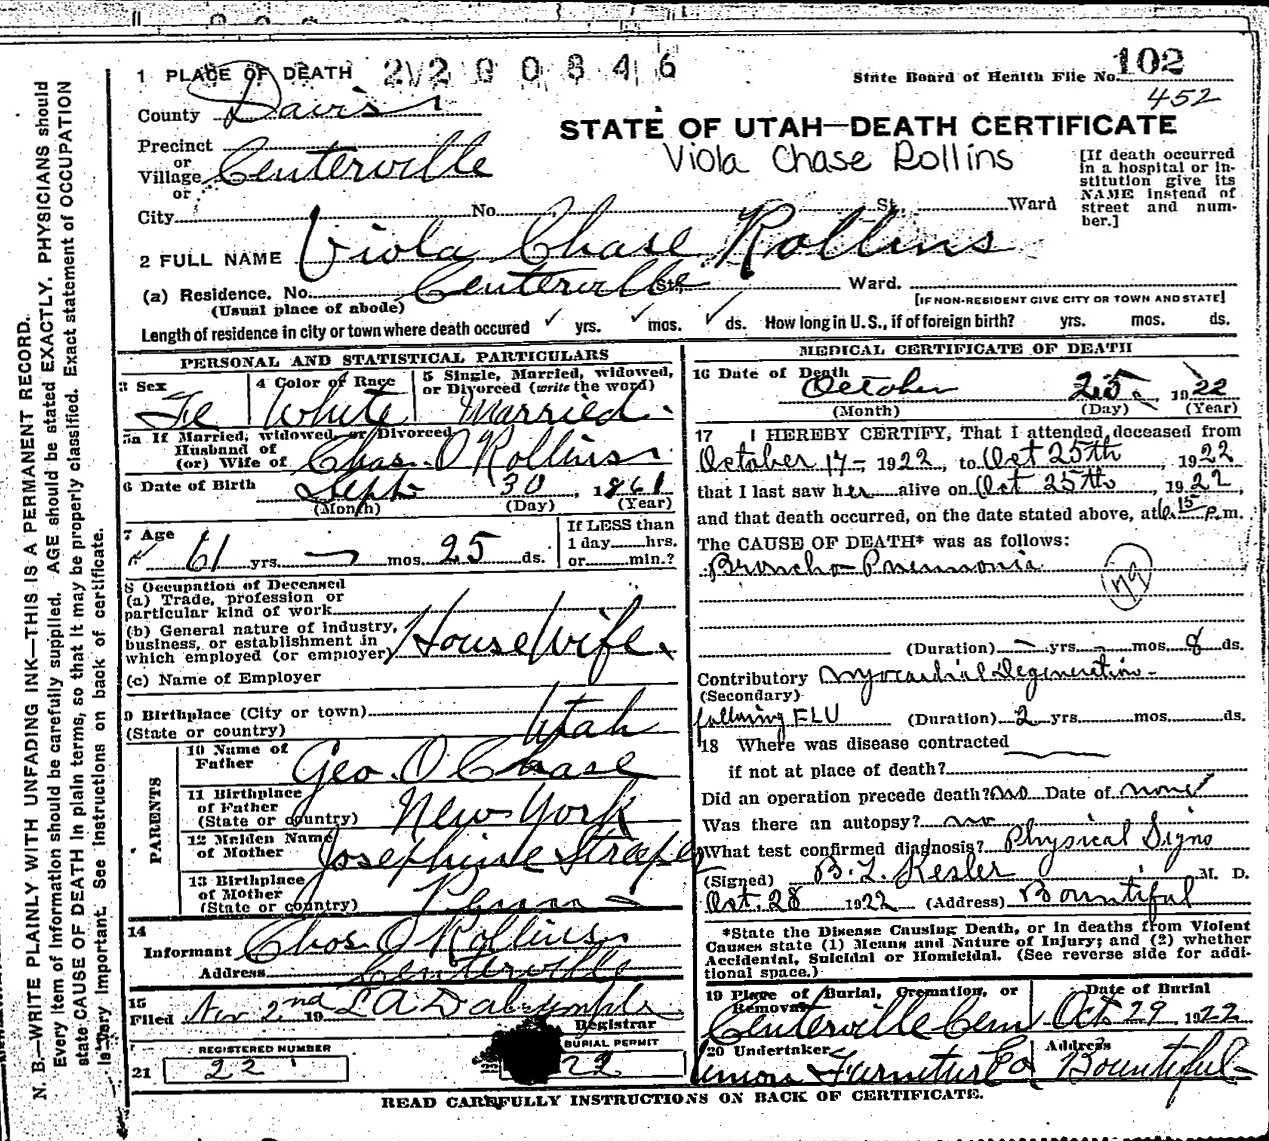 1 PLACE OF DEATH 2200846
State Board of Health File No. 102
452
County Davis
STATE OF UTAH—DEATH CERTIFICATE
Viola Chase Rollins
Precinct
or
Village Centerville
or
City No. St. Ward
[If death occurred in a hospital or institution give its NAME instead of street and number.]
2 FULL NAME Viola Chase Rollins
(a) Residence. No. Centerville St. Ward.
(Usual place of abode) [IF NON-RESIDENT GIVE CITY OR TOWN AND STATE]
Length of residence in city or town where death occured yrs. mos. ds. How long in U.S., if of foreign birth? yrs. mos. ds.
PERSONAL AND STATISTICAL PARTICULARS
3 Sex Fe
4 Color or Race White
5 Single, Married, widowed, or Divorced (write the word) Married
5a If Married, widowed, or Divorced
Husband of
(or) Wife of Chas. O Rollins
6 Date of Birth Sept 30, 1861
(Month) (Day) (Year)
7 Age 61 yrs. mos. 25 ds.
If LESS than
1 day hrs.
or min.?
8 Occupation of Deceased
(a) Trade, profession or
particular kind of work
(b) General nature of industry,
business, or establishment in
which employed (or employer) House Wife
(c) Name of Employer
9 Birthplace (City or town)
(State or country) Utah
PARENTS
10 Name of Father Geo. O Chase
11 Birthplace
of Father
(State or country) New York
12 Meiden Name
of Mother Josephine Streeper
13 Birthplace
of Mother
(State or country) Penn
14
Informant Chas. O Rollins
Address Centerville
15
Filed Nov 2nd 19 L A Dalrymple
Registrar
REGISTERED NUMBER
BURIAL PERMIT
21 22 22
MEDICAL CERTIFICATE OF DEATH
16 Date of Death October 25, 1922
(Month) (Day) (Year)
17 I HEREBY CERTIFY, That I attended deceased from
October 17- 1922, to Oct 25th, 1922
that I last saw her alive on Oct 25th, 1922,
and that death occurred, on the date stated above, at 6 15 p.m.
The CAUSE OF DEATH* was as follows:
Broncho-Pneumonia
(Duration) yrs. mos. 8 ds.
Contributory Myocardial Degeneration-
(Secondary)
following FLU (Duration) 2 yrs. mos. ds.
18 Where was disease contracted
if not at place of death?
Did an operation precede death? No Date of none
Was there an autopsy? no
What test confirmed diagnosis? Physical Signs
(Signed) B. L. Kesler M. D.
Oct. 28 1922 (Address) Bountiful
*State the Disease Causing Death, or in deaths from Violent
Causes state (1) Means and Nature of Injury; and (2) whether
Accidental, Suicidal or Homicidal. (See reverse side for additional space.)
19 Place of Burial, Cremation, or Removal Centerville Cem
Date of Burial Oct 29 1922
20 Undertaker Union Furniture Co
Address Bountiful
READ CAREFULLY INSTRUCTIONS ON BACK OF CERTIFICATE.
N. B.—WRITE PLAINLY WITH UNFADING INK—THIS IS A PERMANENT RECORD.
Every item of information should be carefully supplied. AGE should be stated EXACTLY. PHYSICIANS should
state CAUSE OF DEATH in plain terms, so that it may be properly classified. Exact statement of OCCUPATION
is very important. See instructions on back of certificate.